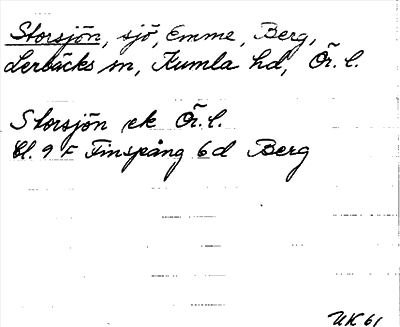 Storsjön, sjö, Emme, Berg,
Lerbäcks sn, Kumla hd, Ör. l.
Storsjön ek Ör. l.
Bl. 9 F Finspång 6d Berg
UK 61